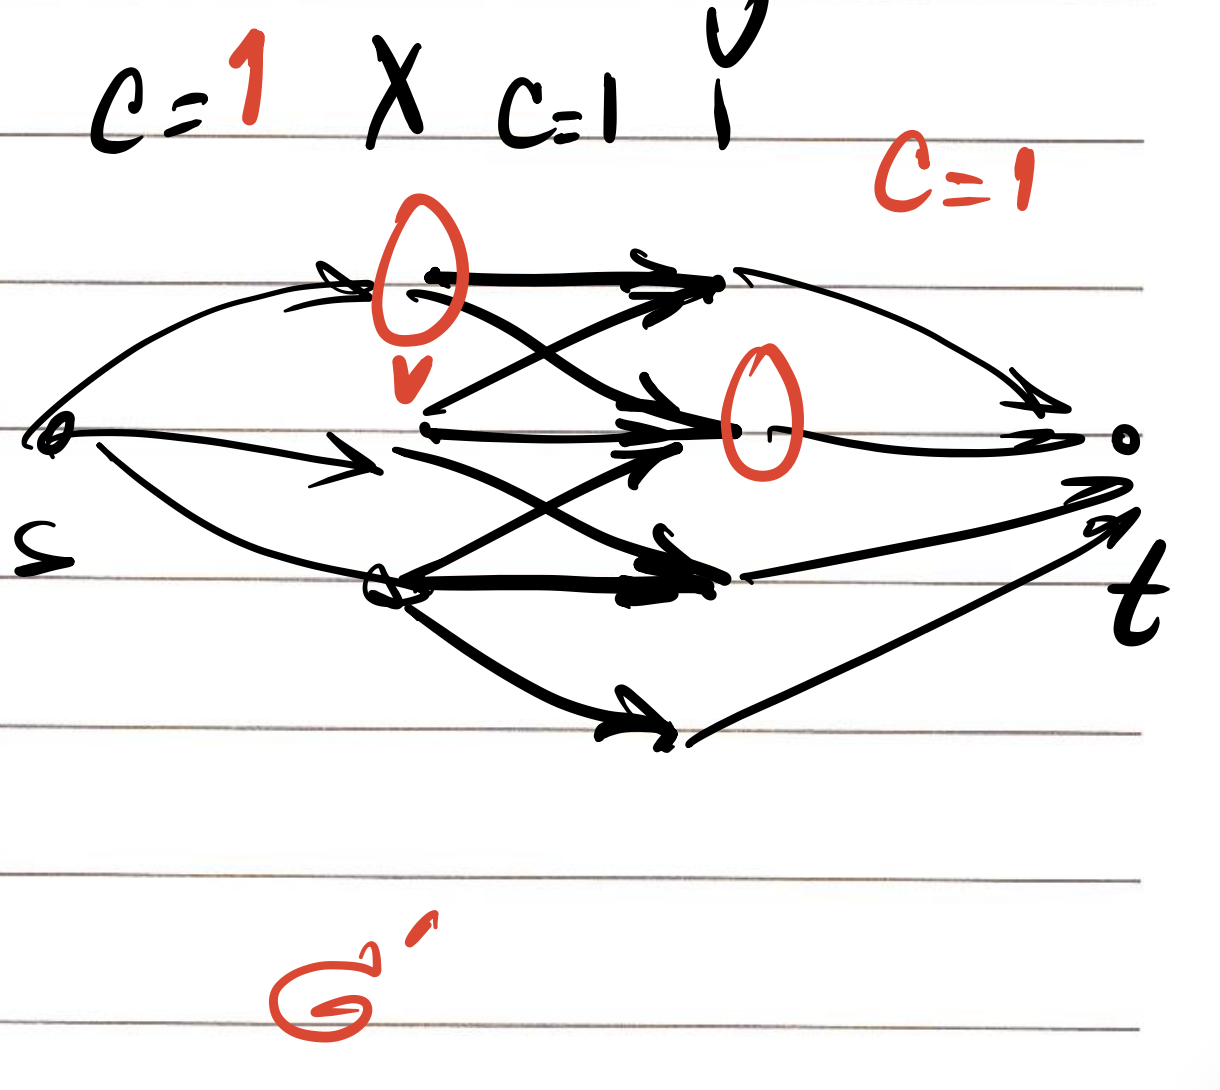 C=1 X C=1 Y
C=1
v
s
t
G'